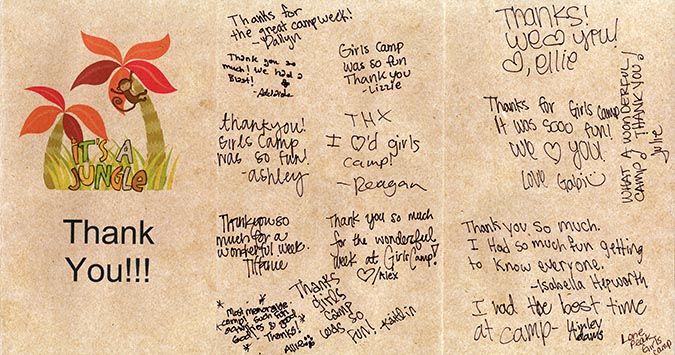 IT'S A
JUNGLE
Thank
You!!!
Thanks for
the great camp week!
Thank you so
much! We had a
Blast!
Girls Camp
was so fun
Thank you
-Lizzie
thank you!
Girls Camp
was so fun!
-ashley
THX
I ♡'d girls
camp!
-Reagan
Thank you so
much for a
wonderful week.
Tiffanie
Thank you so much
for the wonderful
Week at Girls Camp!
♡/Alex
*Most memorable
camp! Such fun
activities & good
Thanks!
Allie
Thanks
Girls
Camp
was so
fun! -Kaitlin
Thanks!
We ♡ you!
♡, Ellie
Thanks for Girls Camp
It was sooo fun!
We ♡ you!
Love Gabi
WHAT A WONDERFUL
CAMP! THANK YOU!
Julie
Thank you so much.
I Had so much fun getting
to know everyone.
-Isabella Hepworth
I had the best time
at camp-
Lone
Peak
Girls
Camp